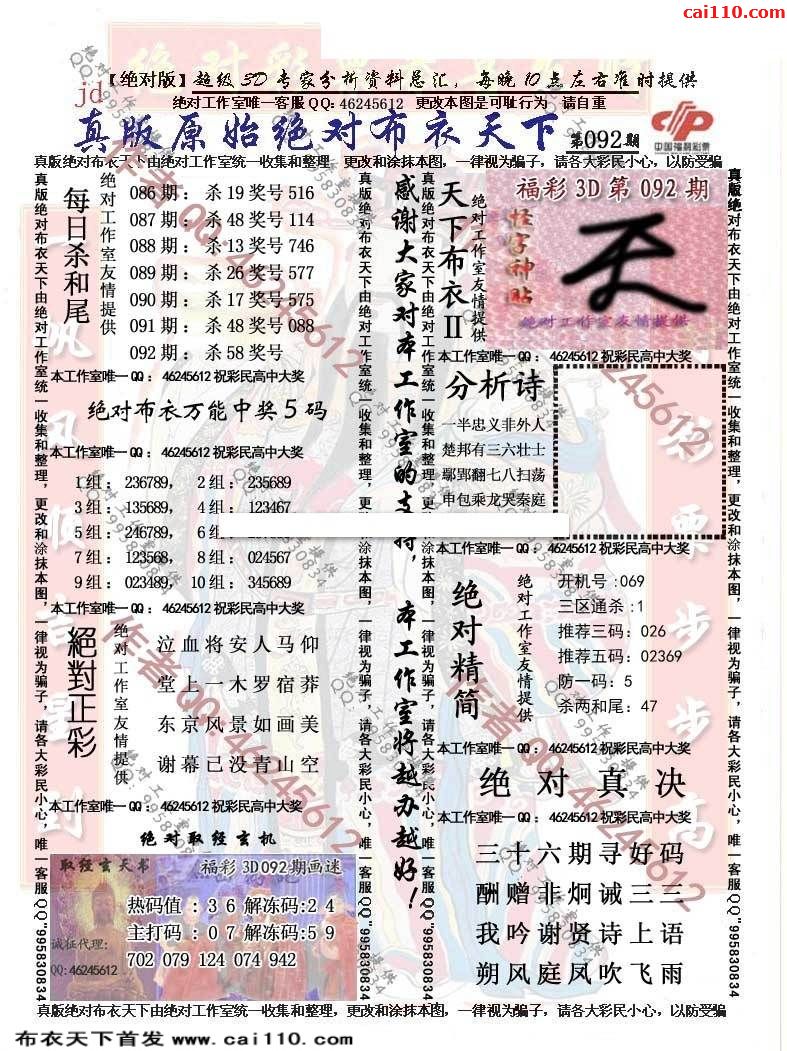 cai110.com
【绝对版】超级3D专家分析资料总汇，每晚10点左右准时提供
jd
绝对工作室唯一客服QQ：46245612 更改本图是可耻行为 请自重
真版原始绝对布衣天下 第092期
中国福利彩票
真版绝对布衣天下由绝对工作室统一收集和整理，更改和涂抹本图，一律视为骗子，请各大彩民小心，以防受骗
真版绝对布衣天下由绝对工作室统一收集和整理，更改和涂抹本图，一律视为骗子，请各大彩民小心，唯一客服QQ"995830834
每日杀和尾
绝对工作室友情提供
086期：杀19奖号516
087期：杀48奖号114
088期：杀13奖号746
089期：杀26奖号577
090期：杀17奖号575
091期：杀48奖号088
092期：杀58奖号
本工作室唯一QQ：46245612祝彩民高中大奖
绝对布衣万能中奖5码
本工作室唯一QQ：46245612祝彩民高中大奖
1组：236789， 2组：235689
3组：135689， 4组：123467
5组：246789， 6组
7组：123568， 8组：024567
9组：023489， 10组：345689
本工作室唯一QQ：46245612祝彩民高中大奖
絕對正彩
绝对工作室友情提供
泣血将安人马仰
堂上一木罗宿莽
东京风景如画美
谢幕已没青山空
本工作室唯一QQ：46245612祝彩民高中大奖
绝对取经玄机
取经玄天书 福彩3D092期画迷
热码值：36解冻码:24
主打码：07解冻码:59
702 079 124 074 942
诚征代理:
QQ:46245612
真版绝对布衣天下由绝对工作室统一收集和整理，更改和涂抹本图，一律视为骗子，请各大彩民小心，唯一客服QQ"995830834
感谢大家对本工作室的支持，本工作室将越办越好！
真版绝对布衣天下由绝对工作室统一收集和整理，更改和涂抹本图，一律视为骗子，请各大彩民小心，唯一客服QQ"995830834
天下布衣II
绝对工作室友情提供
福彩3D第092期
怪字神贴
绝对工作室友情提供
本工作室唯一QQ：46245612祝彩民高中大奖
分析诗
一半忠义非外人
楚邦有三六壮士
鄢郢翻七八扫荡
申包乘龙哭秦庭
本工作室唯一QQ：46245612祝彩民高中大奖
绝对精简
绝对工作室友情提供
开机号:069
三区通杀:1
推荐三码:026
推荐五码:02369
防一码:5
杀两和尾:47
本工作室唯一QQ：46245612祝彩民高中大奖
绝对真决
本工作室唯一QQ：46245612祝彩民高中大奖
三十六期寻好码
酬赠非炯诫三三
我吟谢贤诗上语
朔风庭凤吹飞雨
真版绝对布衣天下由绝对工作室统一收集和整理，更改和涂抹本图，一律视为骗子，请各大彩民小心，唯一客服QQ"995830834
真版绝对布衣天下由绝对工作室统一收集和整理，更改和涂抹本图，一律视为骗子，请各大彩民小心，以防受骗
布衣天下首发 www.cai110.com